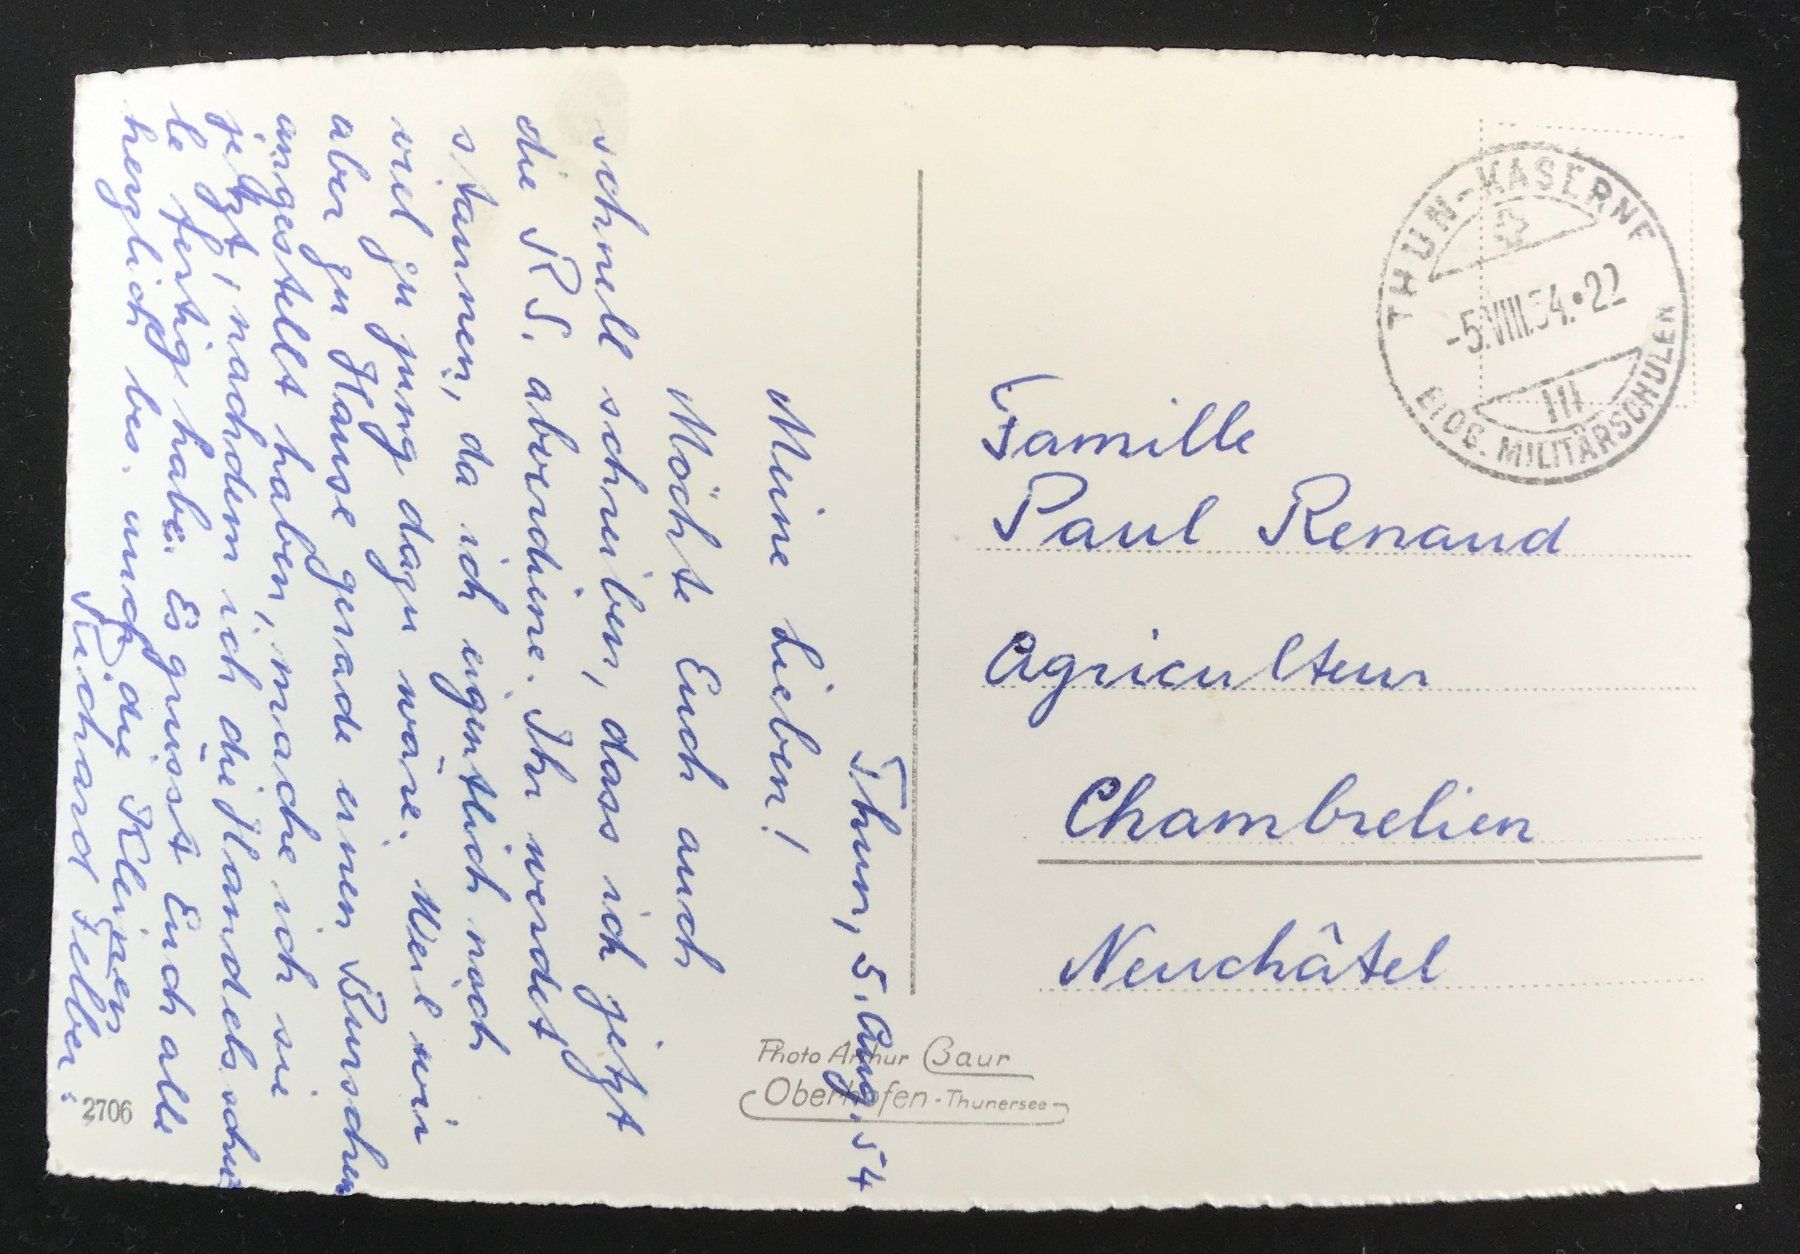 Thun, 5. Aug. 54
Meine Lieben!
Möchte Euch auch
schnell schreiben, dass ich jetzt
die R.S. abverdiene. Ihr werdet
staunen, da ich eigentlich noch
viel zu jung dazu wäre. Weil wir
aber zu Hause gerade einen Burschen
angestellt haben, mache ich sie
jetzt, nachdem ich die Handelsschu-
le fertig habe. Es grüsst Euch alle
herzlich bes. auch die Kleinen
Richard Felber.
THUN-KASERNE
-5.VIII.54.•22
III
EIDG. MILITÄRSCHULEN
Famille
Paul Renaud
Agriculteur
Chambrelien
Neuchâtel
Photo Arthur Baur
Oberhofen - Thunersee
2706